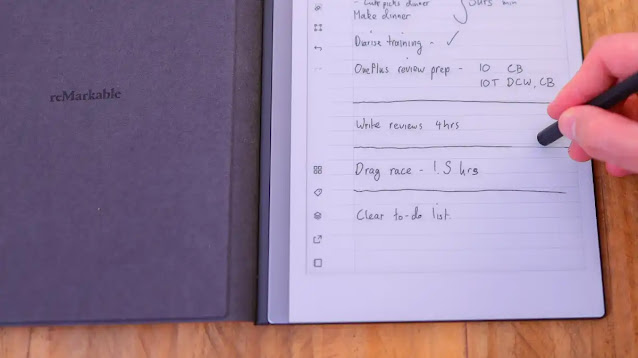 reMarkable
picks dinner
Make dinner
training - ✓
OnePlus review prep - 10 CB
10T DCW, CB
Write reviews 4hrs
Drag race - 1.5 hrs
Clear to-do list.